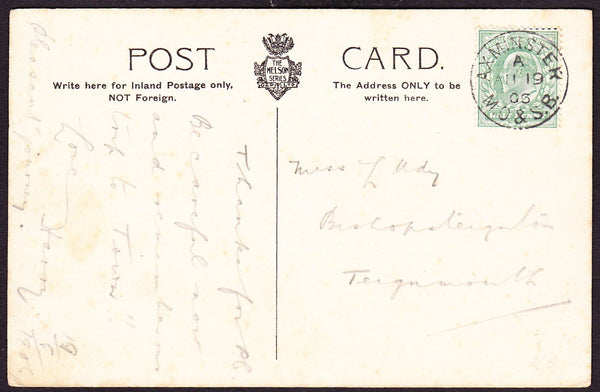 POST CARD.
Write here for Inland Postage only,
NOT Foreign.
The Address ONLY to be
written here.
THE
NELSON
SERIES
AXMINSTER
A
19
06
M.O & S.B
Miss L Udy
Bishopsteignton
Teignmouth
Thanks for P.C.
Be careful now
and remember our
trip to Town!!
Love Harry.
Pleasant journey.
19
6
1906